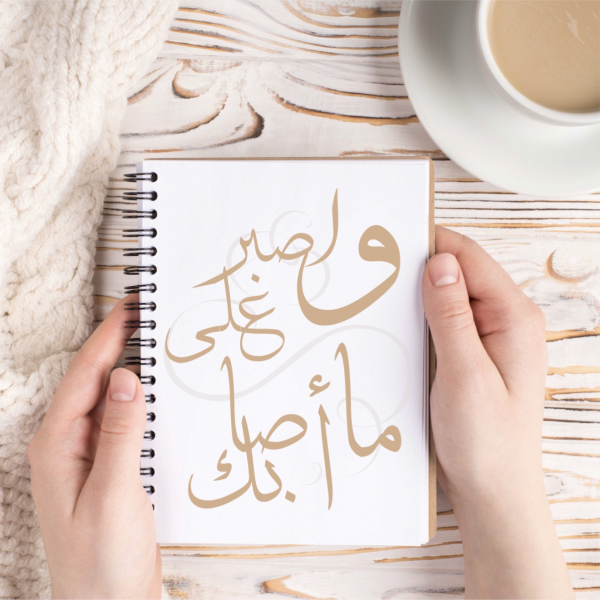 واصبر
على
ما أصابك